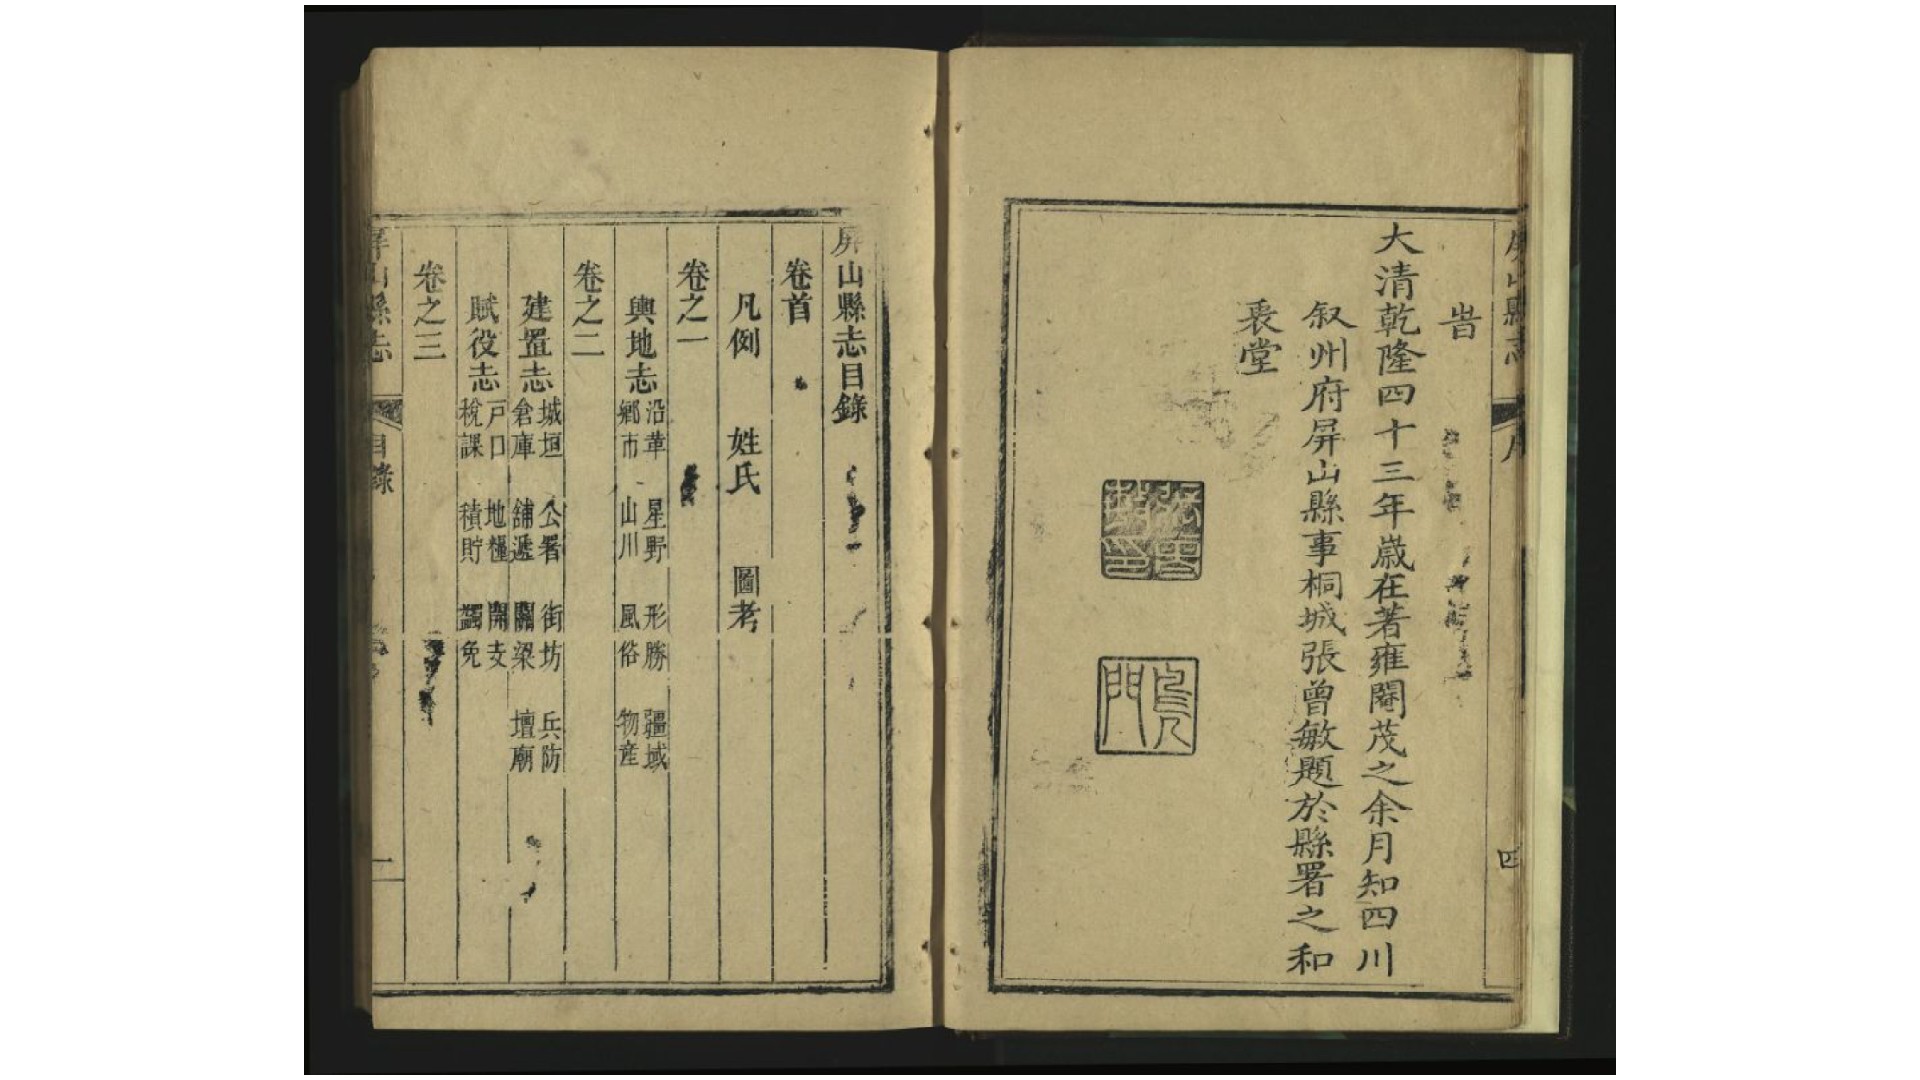 屏山縣志 序 四
旹
大清乾隆四十三年歲在著雍閹茂之余月知四川
叙州府屏山縣事桐城張曾敏題於縣署之和
衷堂
張曾敏印
屏山縣志目錄
卷首
凡例 姓氏 圖考
卷之一
輿地志 沿革 星野 形勝 疆域
鄉市 山川 風俗 物産
卷之二
建置志 城垣 公署 街坊 兵防
倉庫 舖遞 關梁 壇廟
賦役志 戶口 地糧 開支
稅課 積貯 蠲免
卷之三
屏山縣志 目錄 一